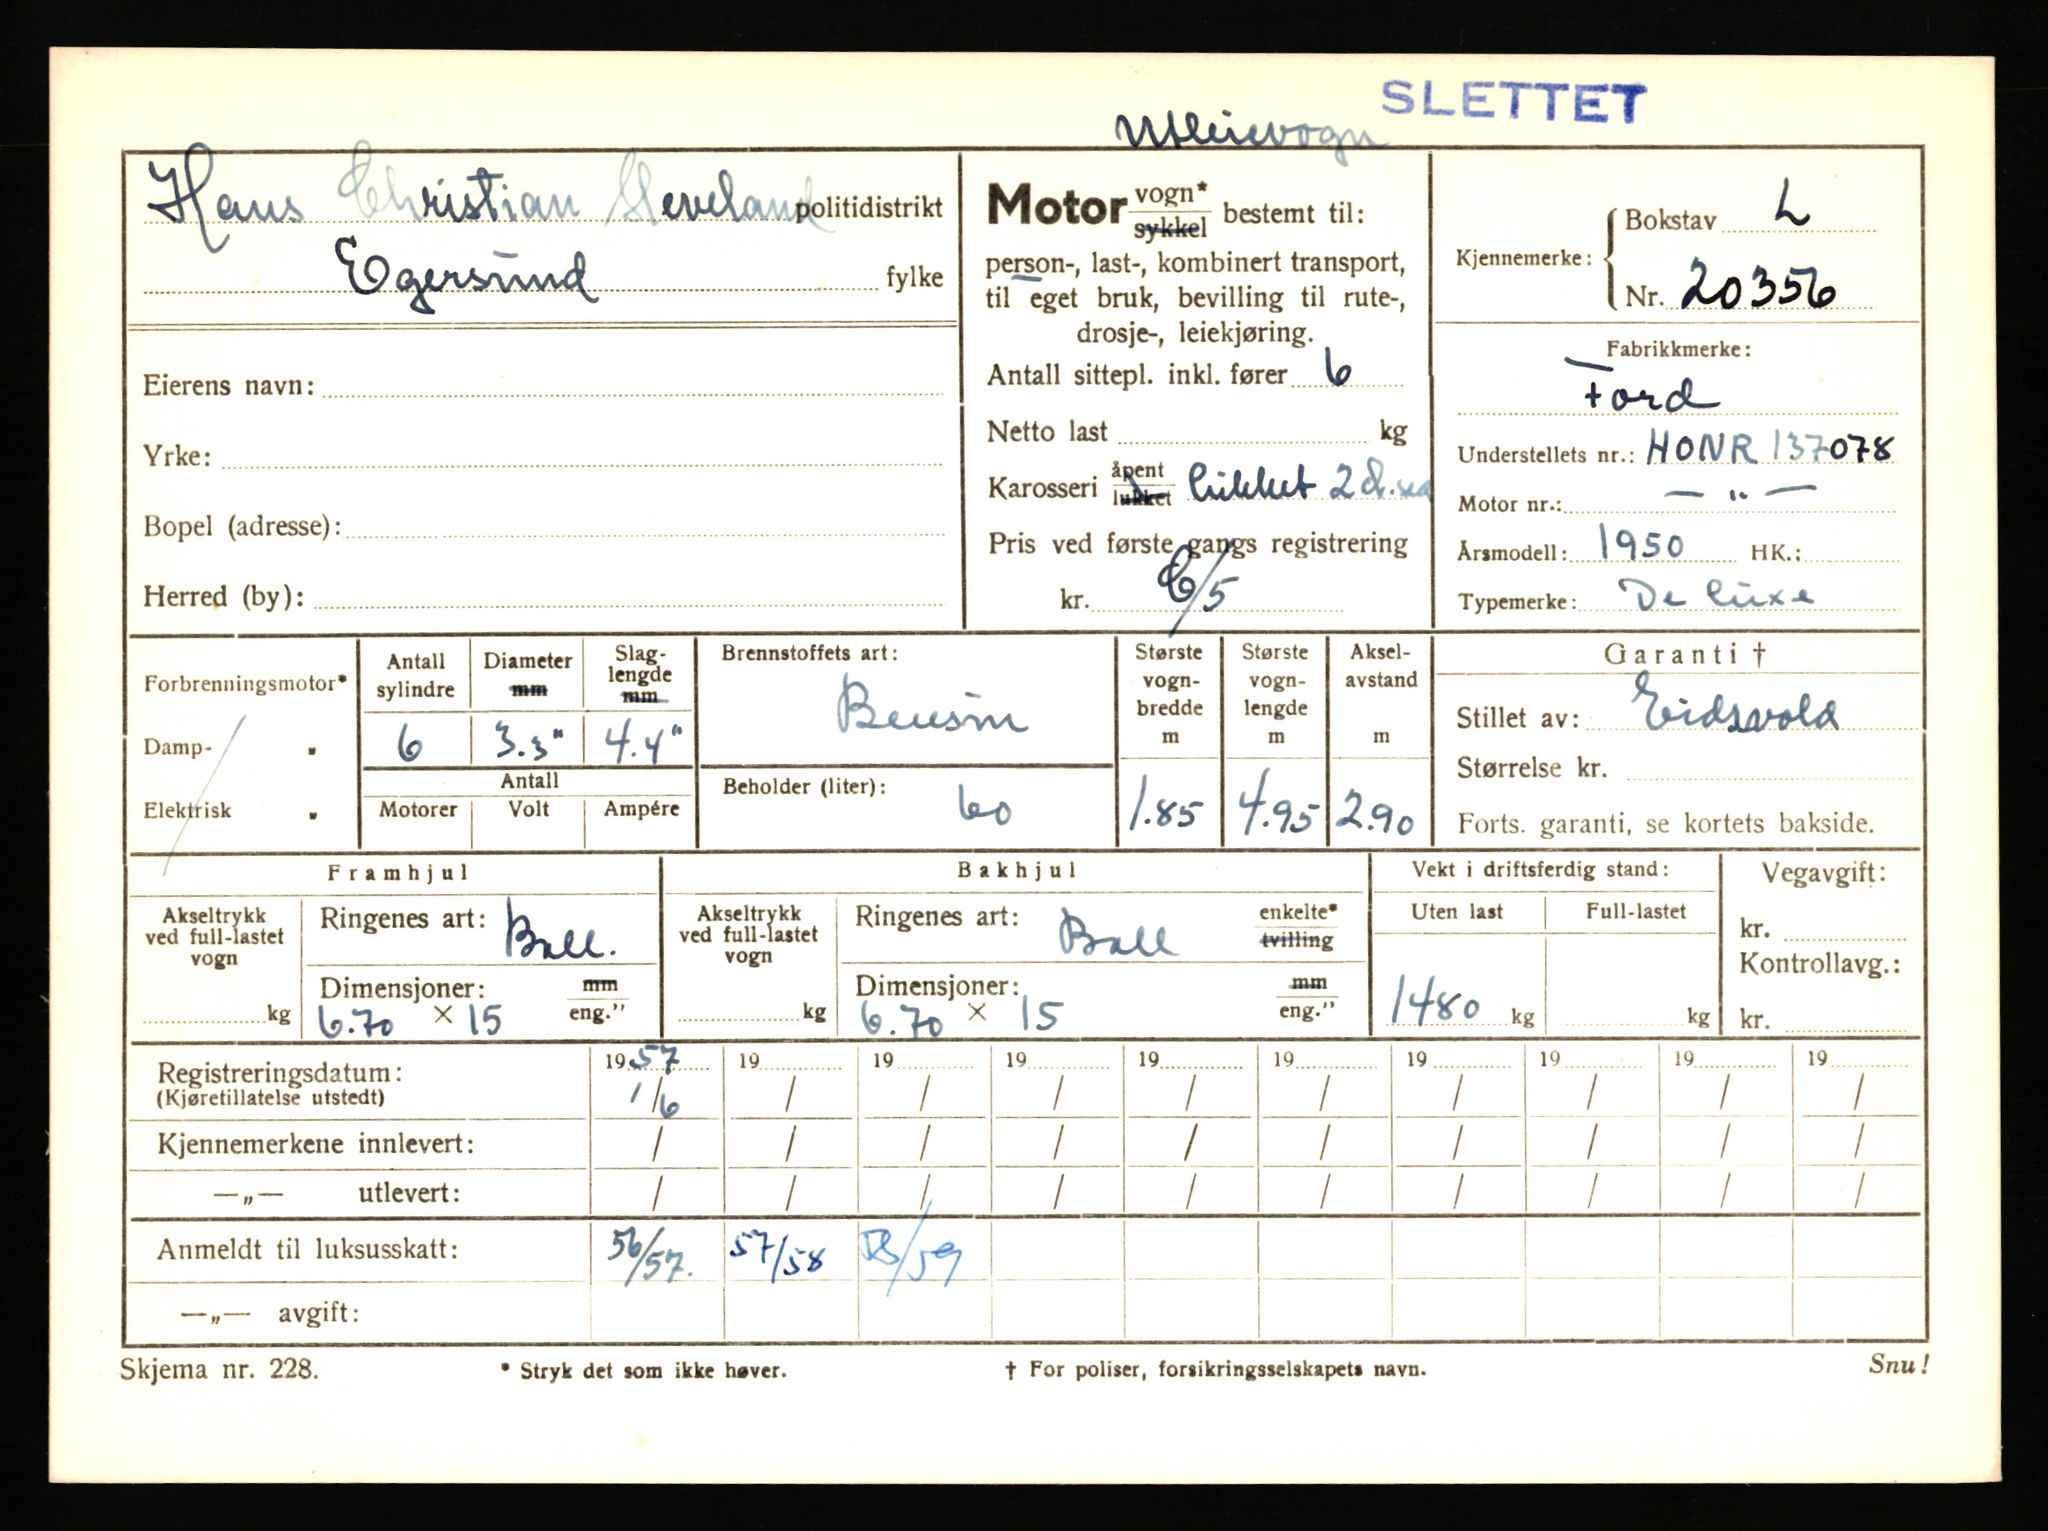 SLETTET
Utleievogn
Hans Christian Sleveland politidistrikt
Egersund fylke
Eierens navn:
Yrke:
Bopel (adresse):
Herred (by):
Motor vogn* sykkel bestemt til:
person-, last-, kombinert transport,
til eget bruk, bevilling til rute-,
drosje-, leiekjøring.
Antall sittepl. inkl. fører 6
Netto last kg
Karosseri åpent lukket lukket 2 d. sed
Pris ved første gangs registrering
kr. C/5
Kjennemerke: Bokstav L
Nr. 20356
Fabrikkmerke:
Ford
Understellets nr.: HONR 137078
Motor nr.: — " —
Årsmodell: 1950 HK.:
Typemerke: De luxe
Forbrenningsmotor*
Damp- "
Elektrisk "
Antall sylindre
6
Diameter mm
3.3"
Slag-lengde mm
4.4"
Antall
Motorer Volt Ampére
Brennstoffets art:
Bensin
Beholder (liter):
60
Største vogn-bredde m
1.85
Største vogn-lengde m
4.95
Aksel-avstand m
2.90
Garanti †
Stillet av: Eidsvold
Størrelse kr.
Forts. garanti, se kortets bakside.
Framhjul
Akseltrykk ved full-lastet vogn
kg
Ringenes art: Ball.
Dimensjoner: mm eng."
6.70 × 15
Bakhjul
Akseltrykk ved full-lastet vogn
kg
Ringenes art: Ball enkelte* tvilling
Dimensjoner: mm eng."
6.70 × 15
Vekt i driftsferdig stand:
Uten last Full-lastet
1480 kg kg
Vegavgift:
kr.
Kontrollavg.:
kr.
Registreringsdatum: 1957 19 19 19 19 19 19 19 19 19
(Kjøretillatelse utstedt) 1/6 / / / / / / / / /
Kjennemerkene innlevert: / / / / / / / / / /
—„— utlevert: / / / / / / / / / /
Anmeldt til luksusskatt: 56/57. 57/58 58/59
—„— avgift:
Skjema nr. 228. * Stryk det som ikke høver. † For poliser, forsikringsselskapets navn. Snu!